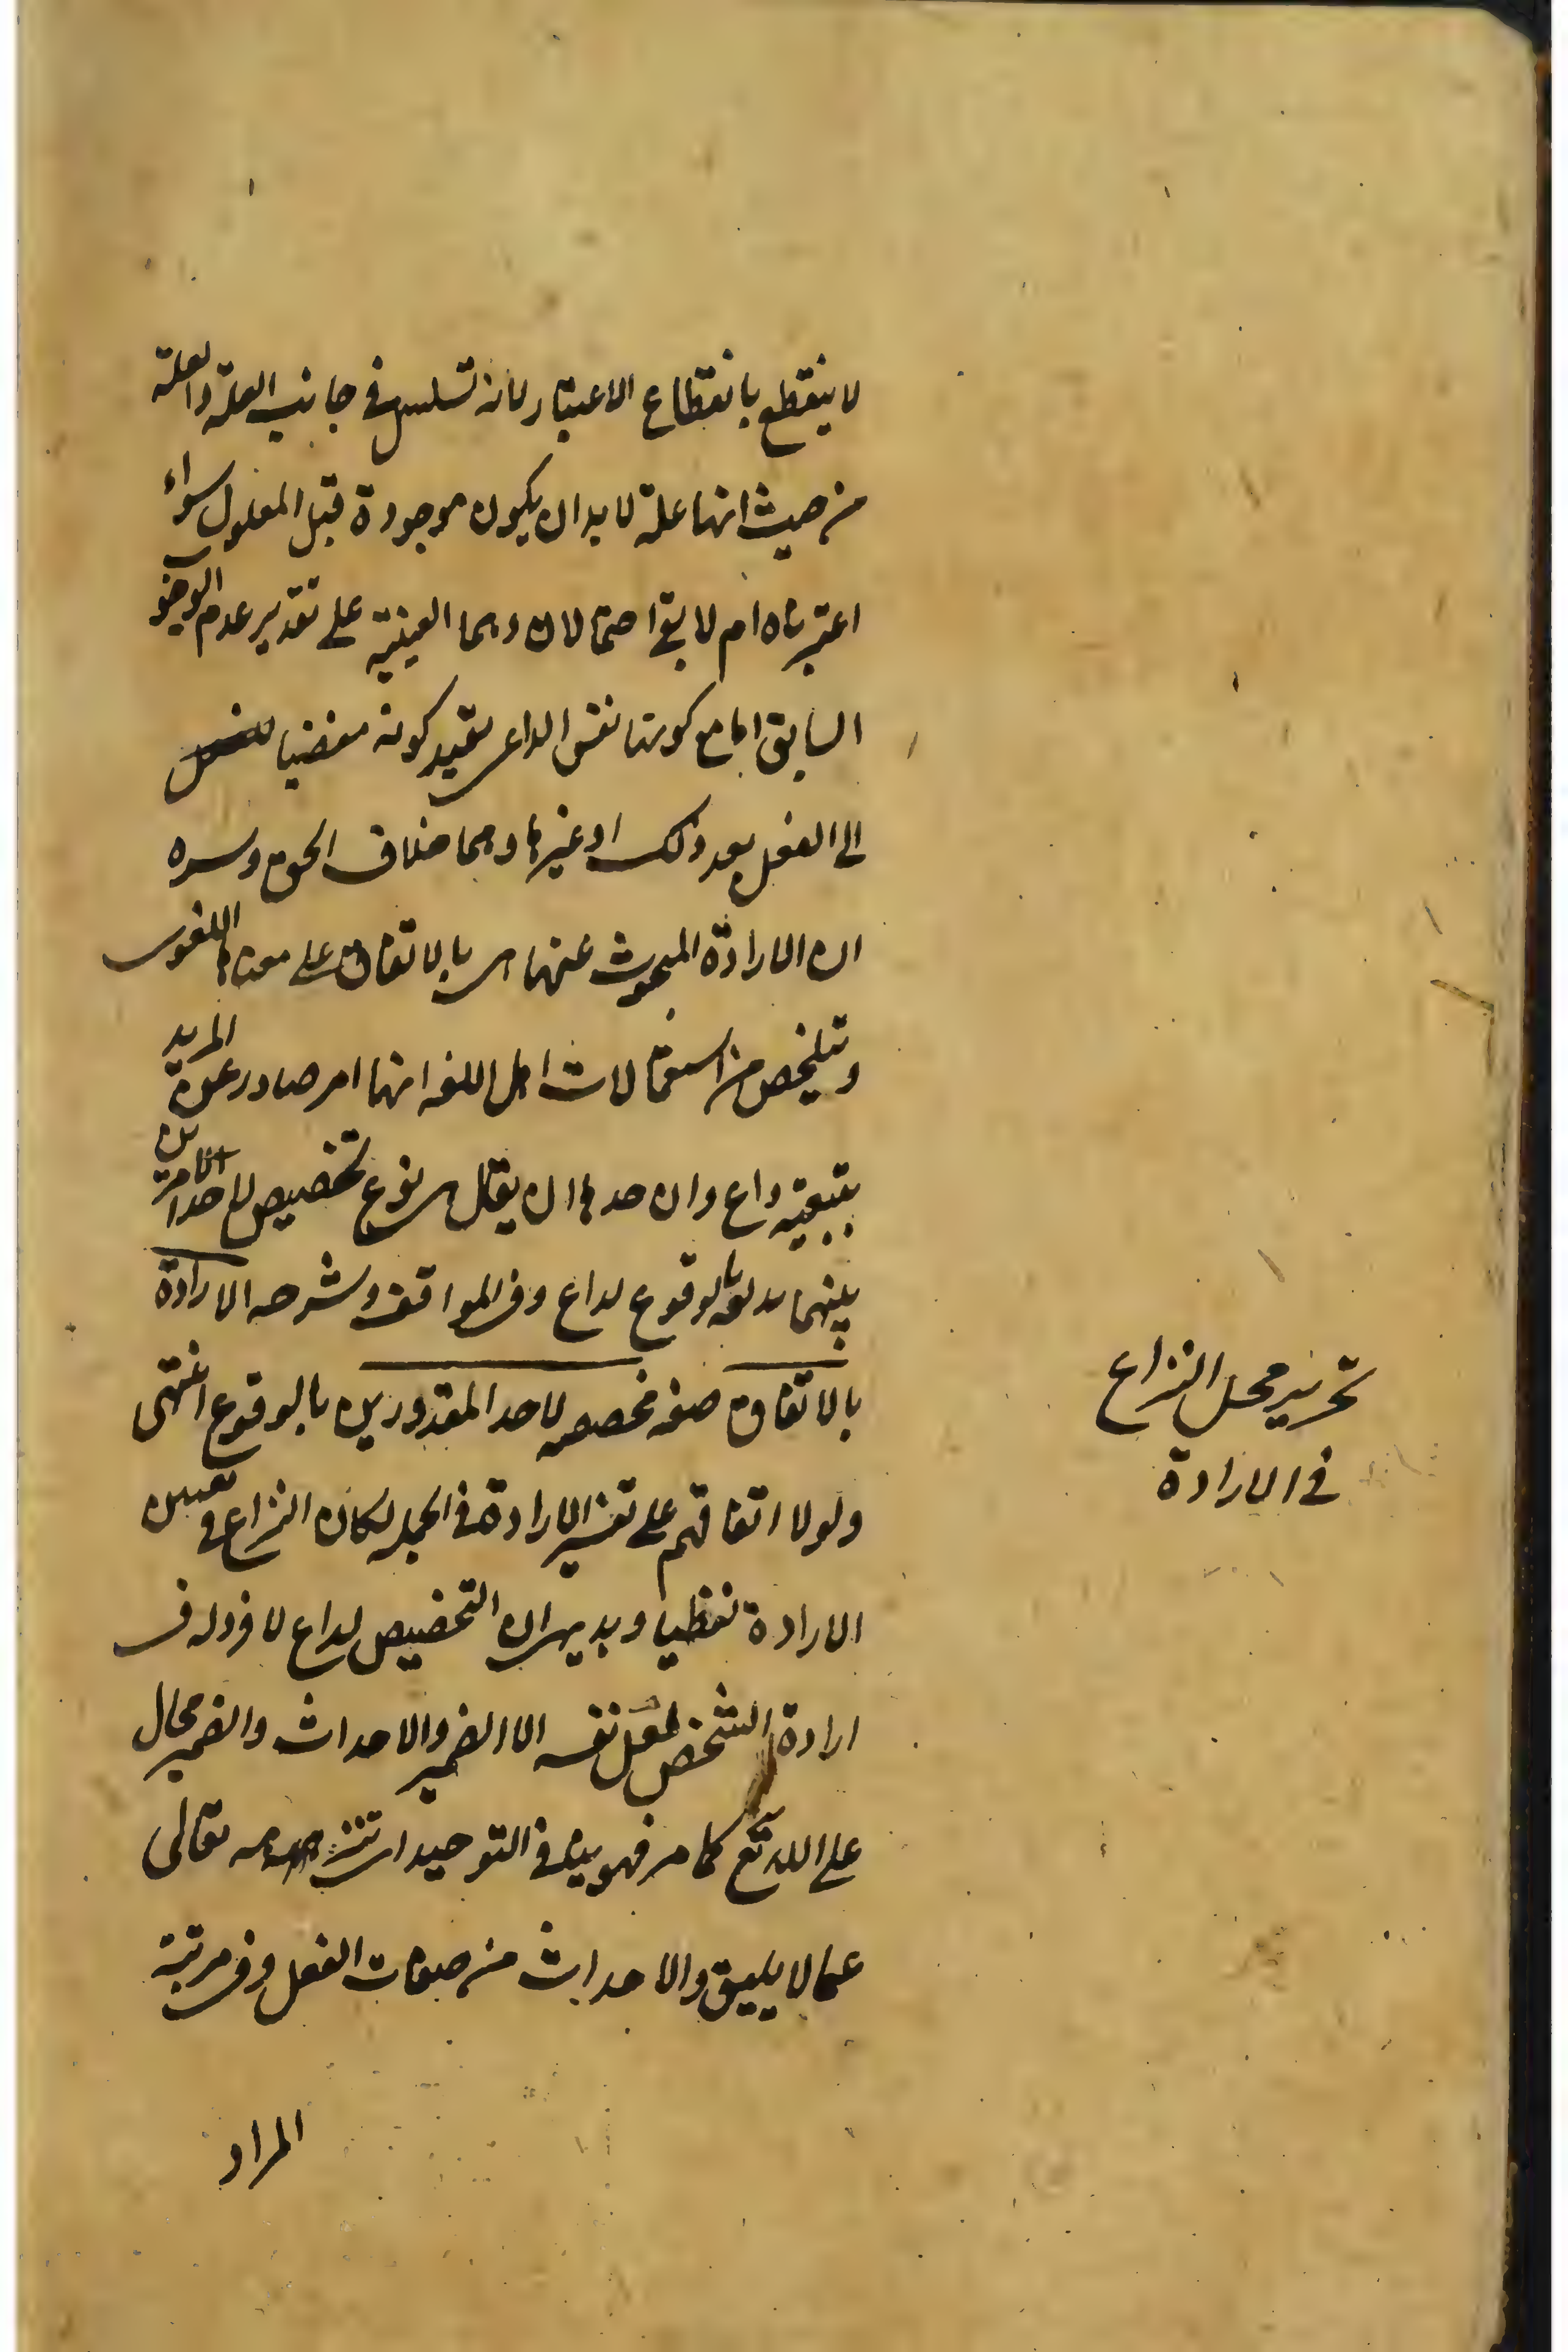 لا ينقطع بانقطاع الاعتبار لانه تسلسل في جانب العلة والعلة
من حيث انها علة لا بد ان يكون موجودة قبل المعلول سواء
اعتبرناه ام لا بقي احتمالان وهما العينية على تقدير عدم الوجود
السابق اما مع كونها نفس الداعي بقيد كونه مفضيا
الى الفعل بعد ذلك او غيرها وهما خلاف الحق وسره
ان الارادة المبحوث عنها هي بالاتفاق على معناها اللغوي
وتلخص من استعمالات اهل اللغة انها امر صادر عن المريد
بتبعية داع وان حدها ان يقال هي نوع تخصيص لاحد الامرين
بينهما بالوقوع لداع وفي المواقف وشرحه الارادة
بالاتفاق صفة مخصصة لاحد المقدورين بالوقوع انتهى
ولولا اتفاقهم على تفسير الارادة في الجملة لكان النزاع في تعيين
الارادة لفظيا وبديهي ان التخصيص لداع لا فرد له في
ارادة الشخص لفعل نفسه الا الضمير والاحداث والضمير محال
على الله تع كما مر فهو ينافي التوحيد اي تنزيهه تعالى
عما لا يليق والاحداث من صفات الفعل وفي مرتبة
المراد
تحرير محل النزاع
في الارادة